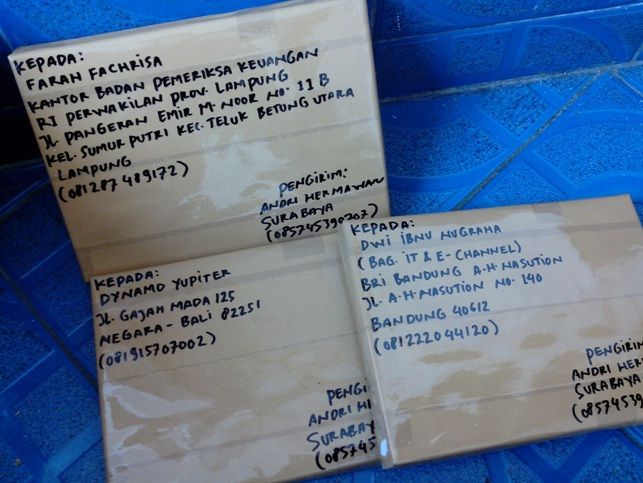 KEPADA:
FARAH FACHRISA
KANTOR BADAN PEMERIKSA KEUANGAN
RI PERWAKILAN PROV. LAMPUNG
JL. PANGERAN EMIR M. NOOR NO. 11 B
KEL. SUMUR PUTRI KEC. TELUK BETUNG UTARA
LAMPUNG
(081287489172)
PENGIRIM:
ANDRI HERMAWAN
SURABAYA
(085745390707)
KEPADA:
DYNAMO YUPITER
JL. GAJAH MADA 125
NEGARA - BALI 82251
(081915707002)
PENGI
ANDRI H
SURABAY
(085745
KEPADA:
DWI IBNU NUGRAHA
(BAG. IT & E-CHANNEL)
BRI BANDUNG A.H NASUTION
JL. A.H. NASUTION NO. 140
BANDUNG 40612
(081222044120)
PENGIRIM
ANDRI HER
SURABAYA
(08574539